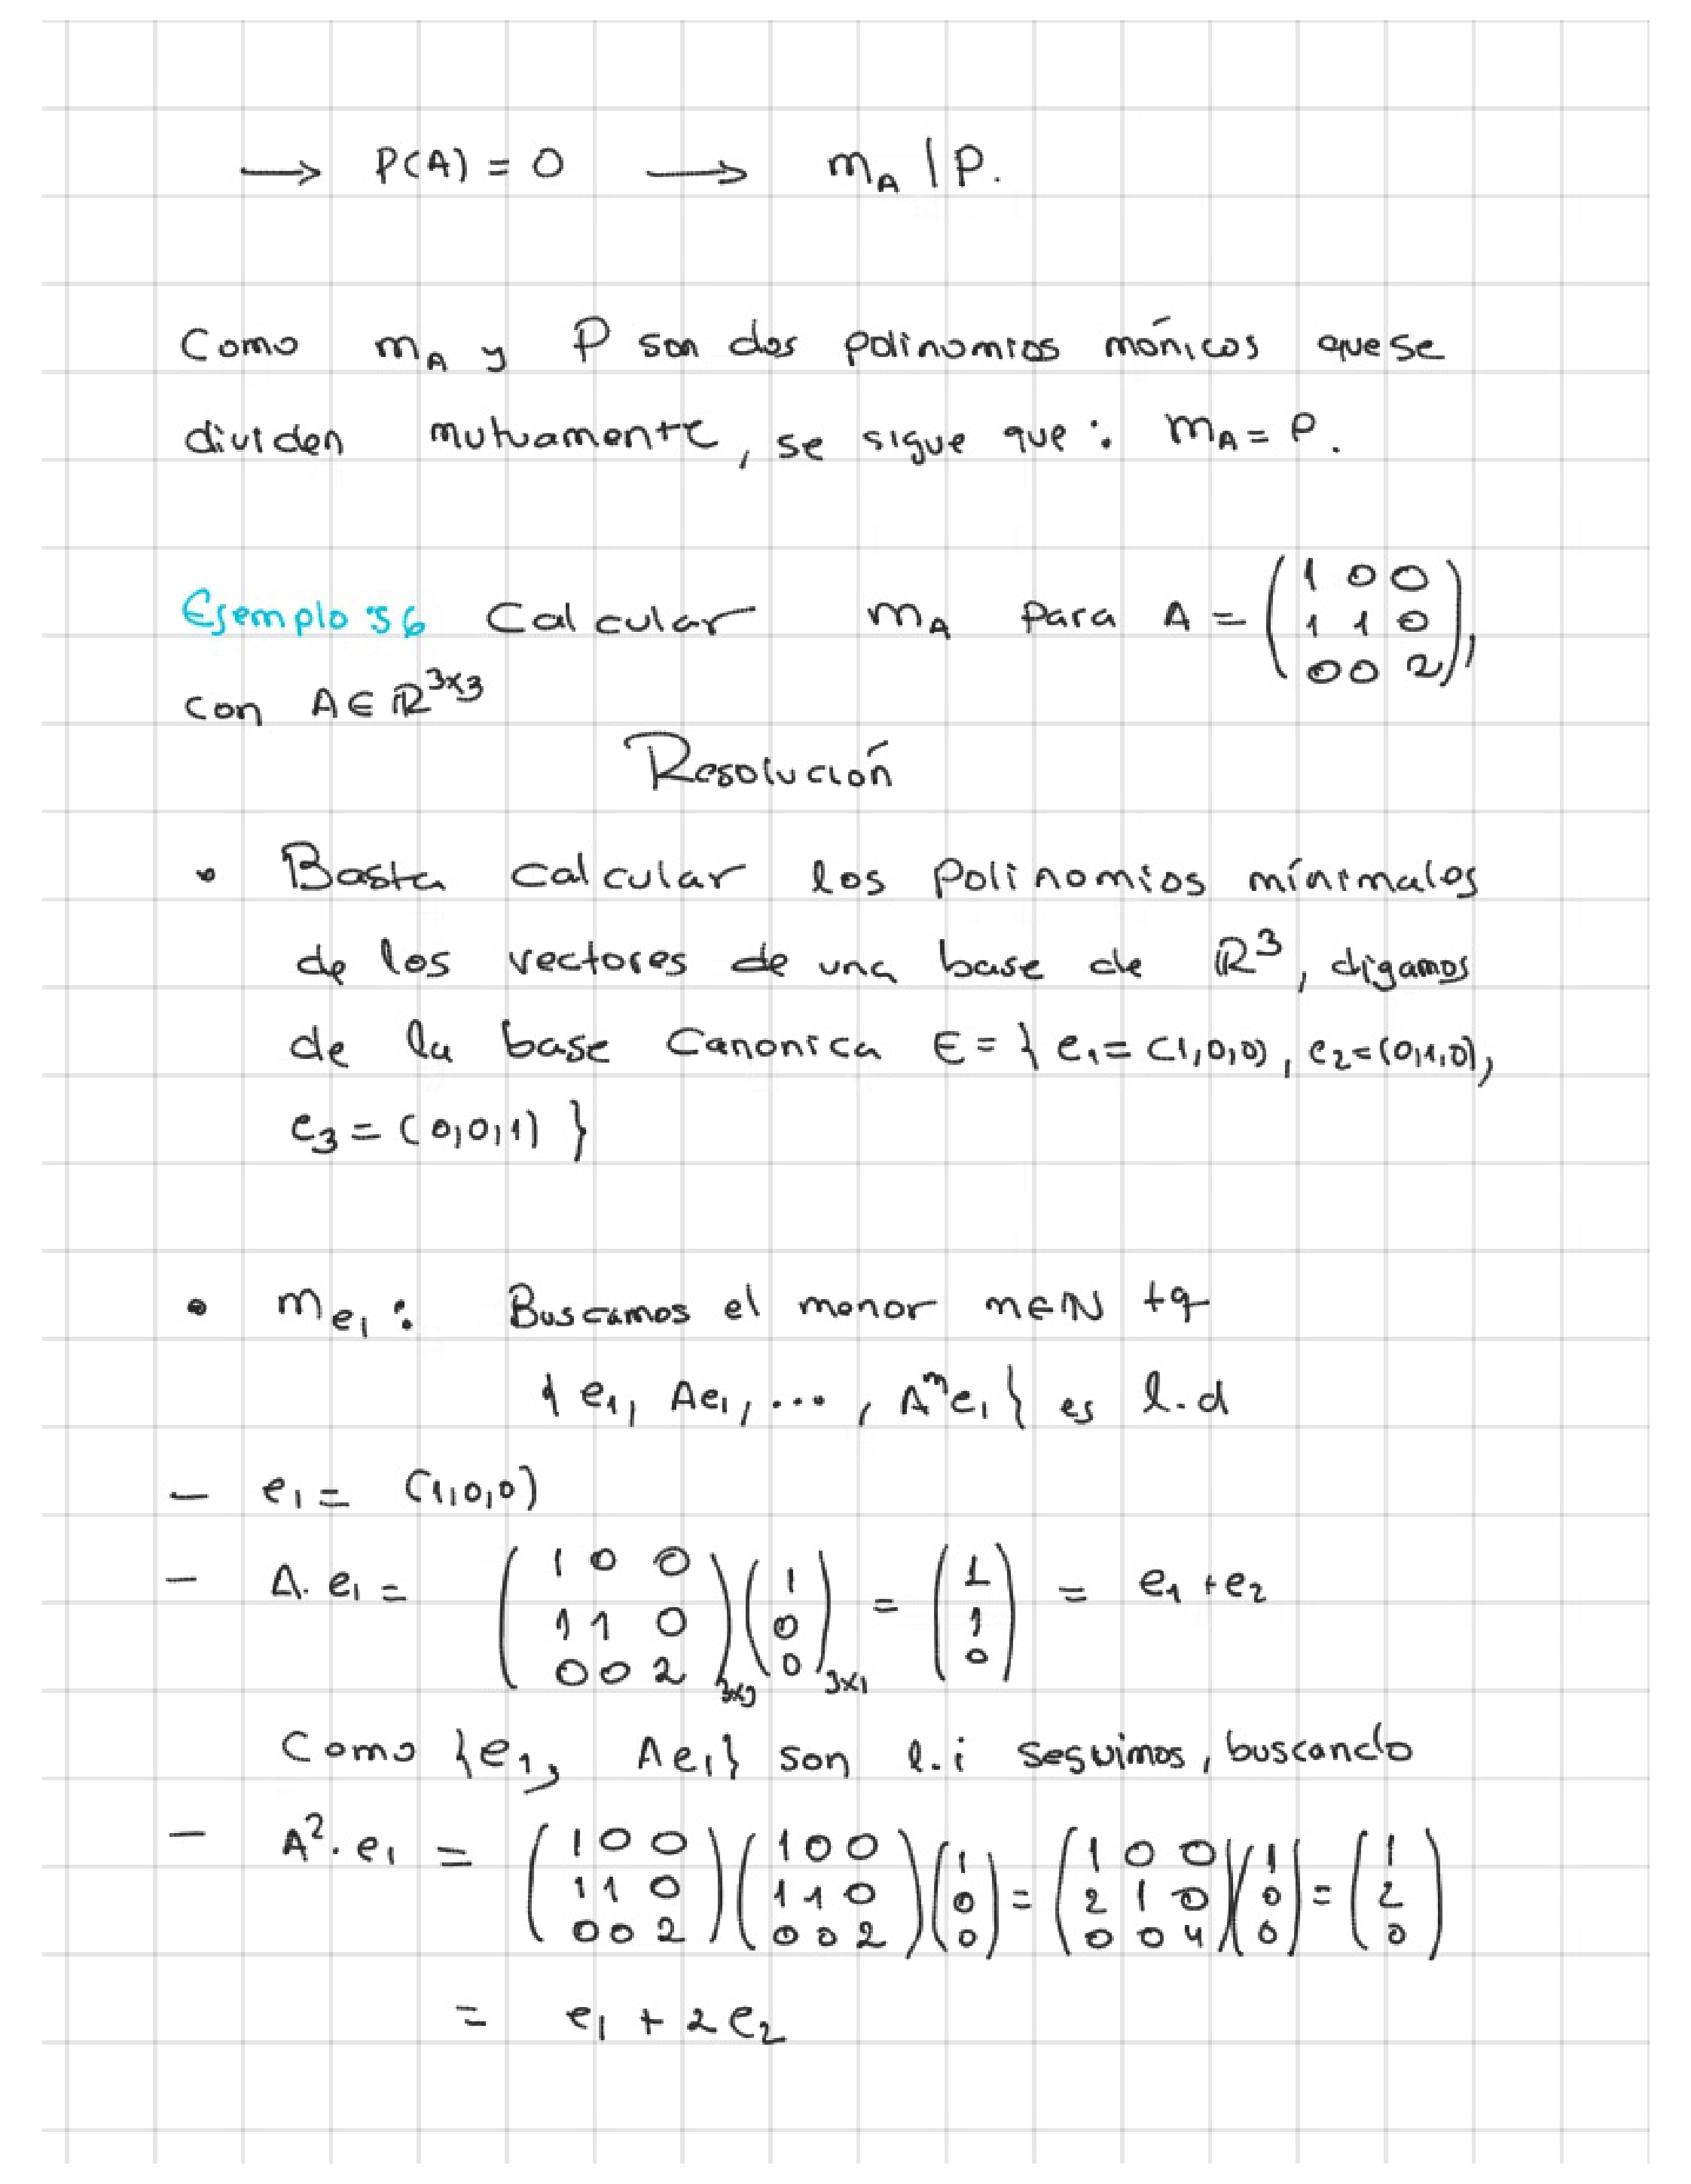 → P(A) = 0 → m_A | P.
Como m_A y P son dos polinomios mónicos que se
dividen mutuamente, se sigue que: m_A = P.
Ejemplo 56 Calcular m_A para A = (1 0 0; 1 1 0; 0 0 2),
con A ∈ ℝ^{3×3}
Resolución
• Basta calcular los polinomios mínimales
de los vectores de una base de ℝ³, digamos
de la base Canonica E = { e₁ = (1,0,0), e₂ = (0,1,0),
e₃ = (0,0,1) }
• m_{e₁}: Buscamos el menor m∈ℕ tq
{ e₁, Ae₁, ..., A^m e₁ } es l.d
- e₁ = (1,0,0)
- A. e₁ = (1 0 0; 1 1 0; 0 0 2)_{3×3} (1; 0; 0)_{3×1} = (1; 1; 0) = e₁ + e₂
Como {e₁, Ae₁} son l.i seguimos, buscando
- A². e₁ = (1 0 0; 1 1 0; 0 0 2)(1 0 0; 1 1 0; 0 0 2)(1; 0; 0) = (1 0 0; 2 1 0; 0 0 4)(1; 0; 0) = (1; 2; 0)
= e₁ + 2e₂